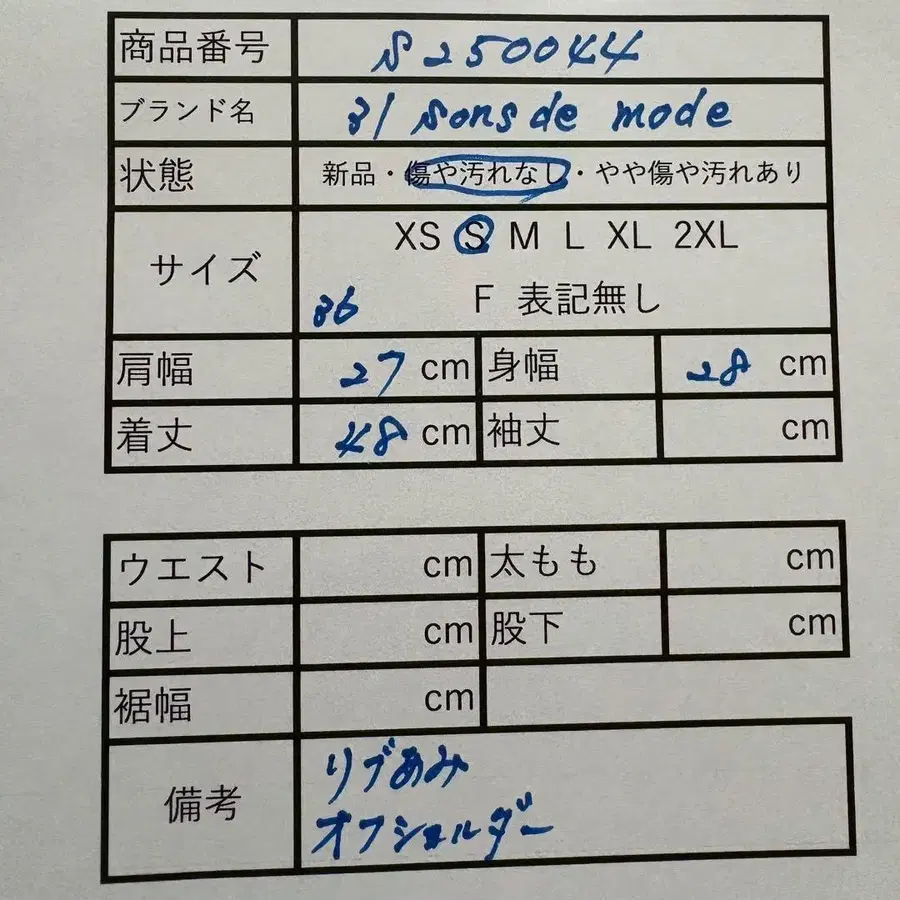 商品番号 S250044
ブランド名 31 Sons de mode
状態 新品・傷や汚れなし・やや傷や汚れあり
サイズ XS S M L XL 2XL
36 F 表記無し
肩幅 27 cm 身幅 28 cm
着丈 48 cm 袖丈 cm
ウエスト cm 太もも cm
股上 cm 股下 cm
裾幅 cm
備考 リブあみ
オフショルダー